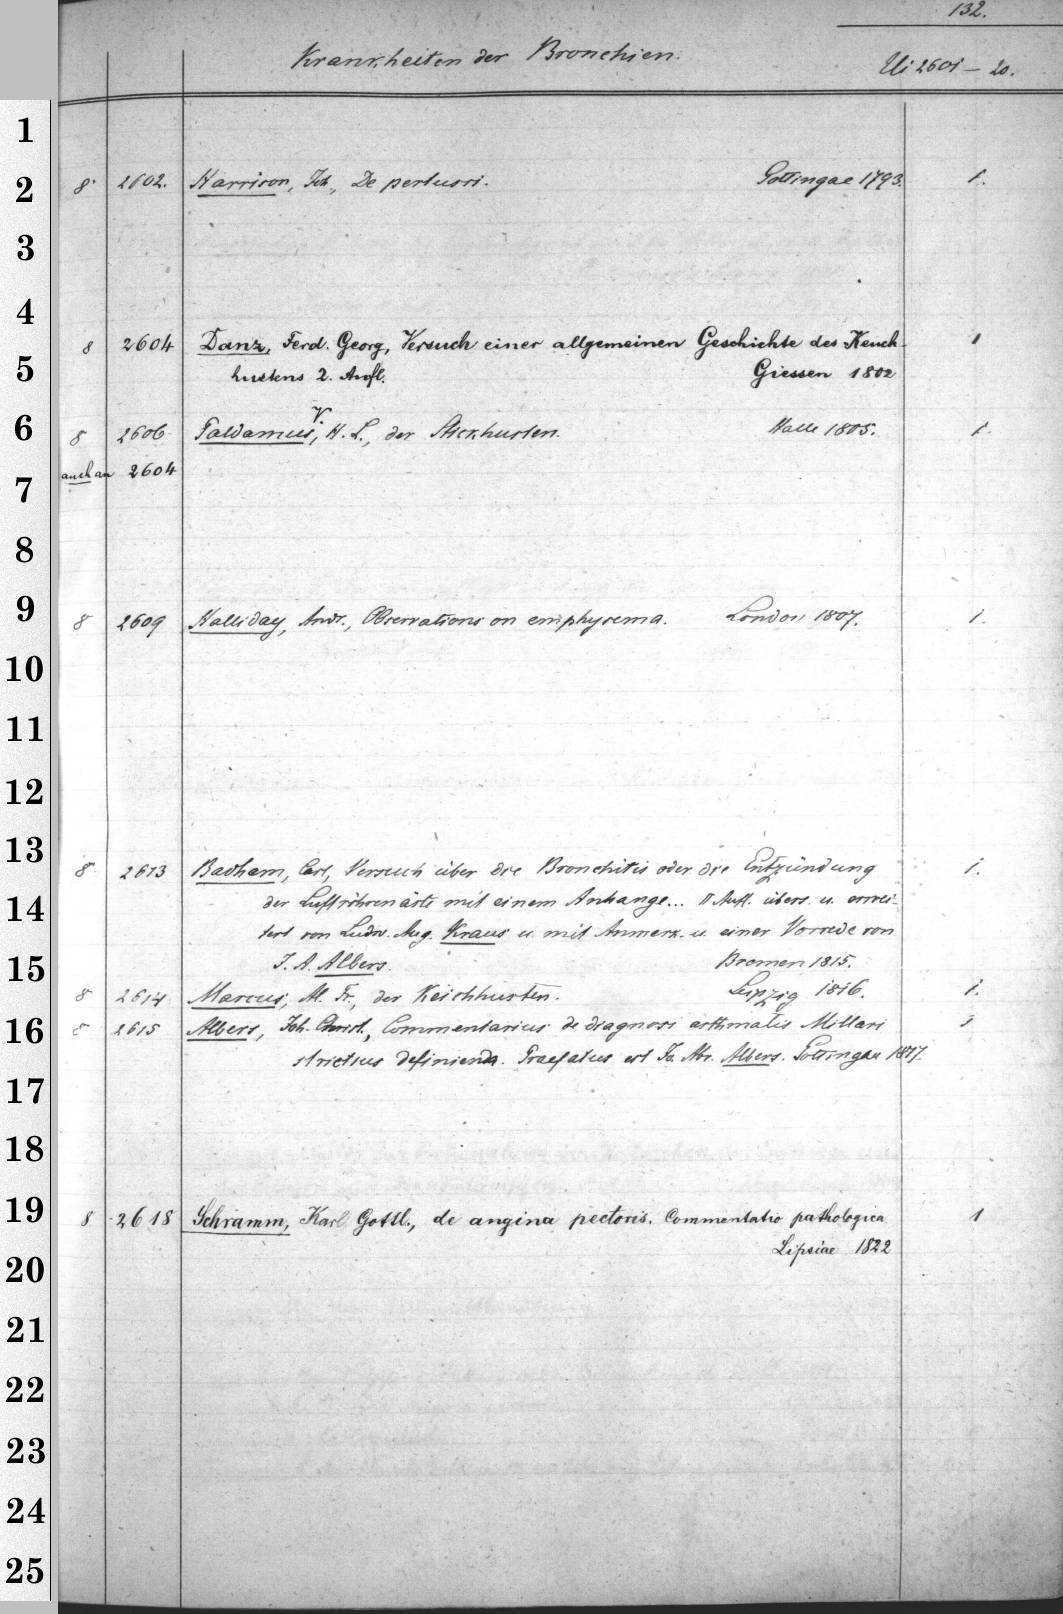 132.
Krankheiten der Bronchien.
Ui 2601 - 20.
1
2
8° 2602. Harrison, Joh., De pertussi. Gottingae 1793. 1.
3
4
8 2604 Danz, Ferd. Georg, Versuch einer allgemeinen Geschichte des Keuch- 1
5
hustens 2. Aufl. Giessen 1802
V.
6
8 2606 Faldamus, H. L., der Stickhusten. Halle 1805. 1.
auch an 2604
7
8
9
8 2609 Halliday, Andr., Observations on emphysema. London 1807. 1.
10
11
12
13
8° 2613 Badham, Carl, Versuch über die Bronchitis oder die Entzündung 1.
14
der Luftröhrenäste mit einem Anhange... II Aufl. übers. u. erwei-
tert von Ludw. Aug. Kraus u. mit Anmerk. u. einer Vorrede von
15
J. A. Albers. Bremen 1815.
8 2614 Marcus, Al. Fr., der Keichhusten. Leipzig 1816. 1.
16
8 2615 Albers, Joh. Christ., Commentarius de diagnosi asthmatis Millari
strictius definienda. Praefatus est Jo. Abr. Albers. Gottingae 1817.
17
18
19
8 2618 Schramm, Karl Gottl., de angina pectoris. Commentatio pathologica 1
Lipsiae 1822
20
21
22
23
24
25